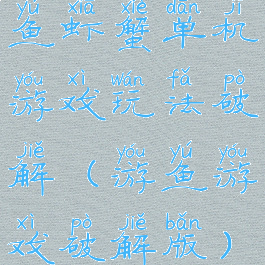 yú xiā xiè dān jī
鱼虾蟹单机
yóu xì wán fǎ pò
游戏玩法破
jiě yóu yú yóu
解（游鱼游
xì pò jiě bǎn
戏破解版）